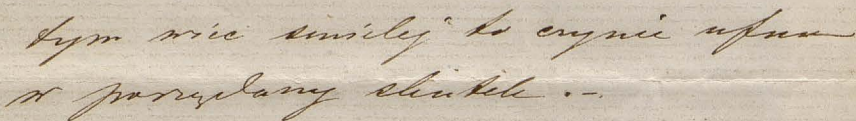 tym więc śmielej to czynię ufna
w pożądany skutek.–